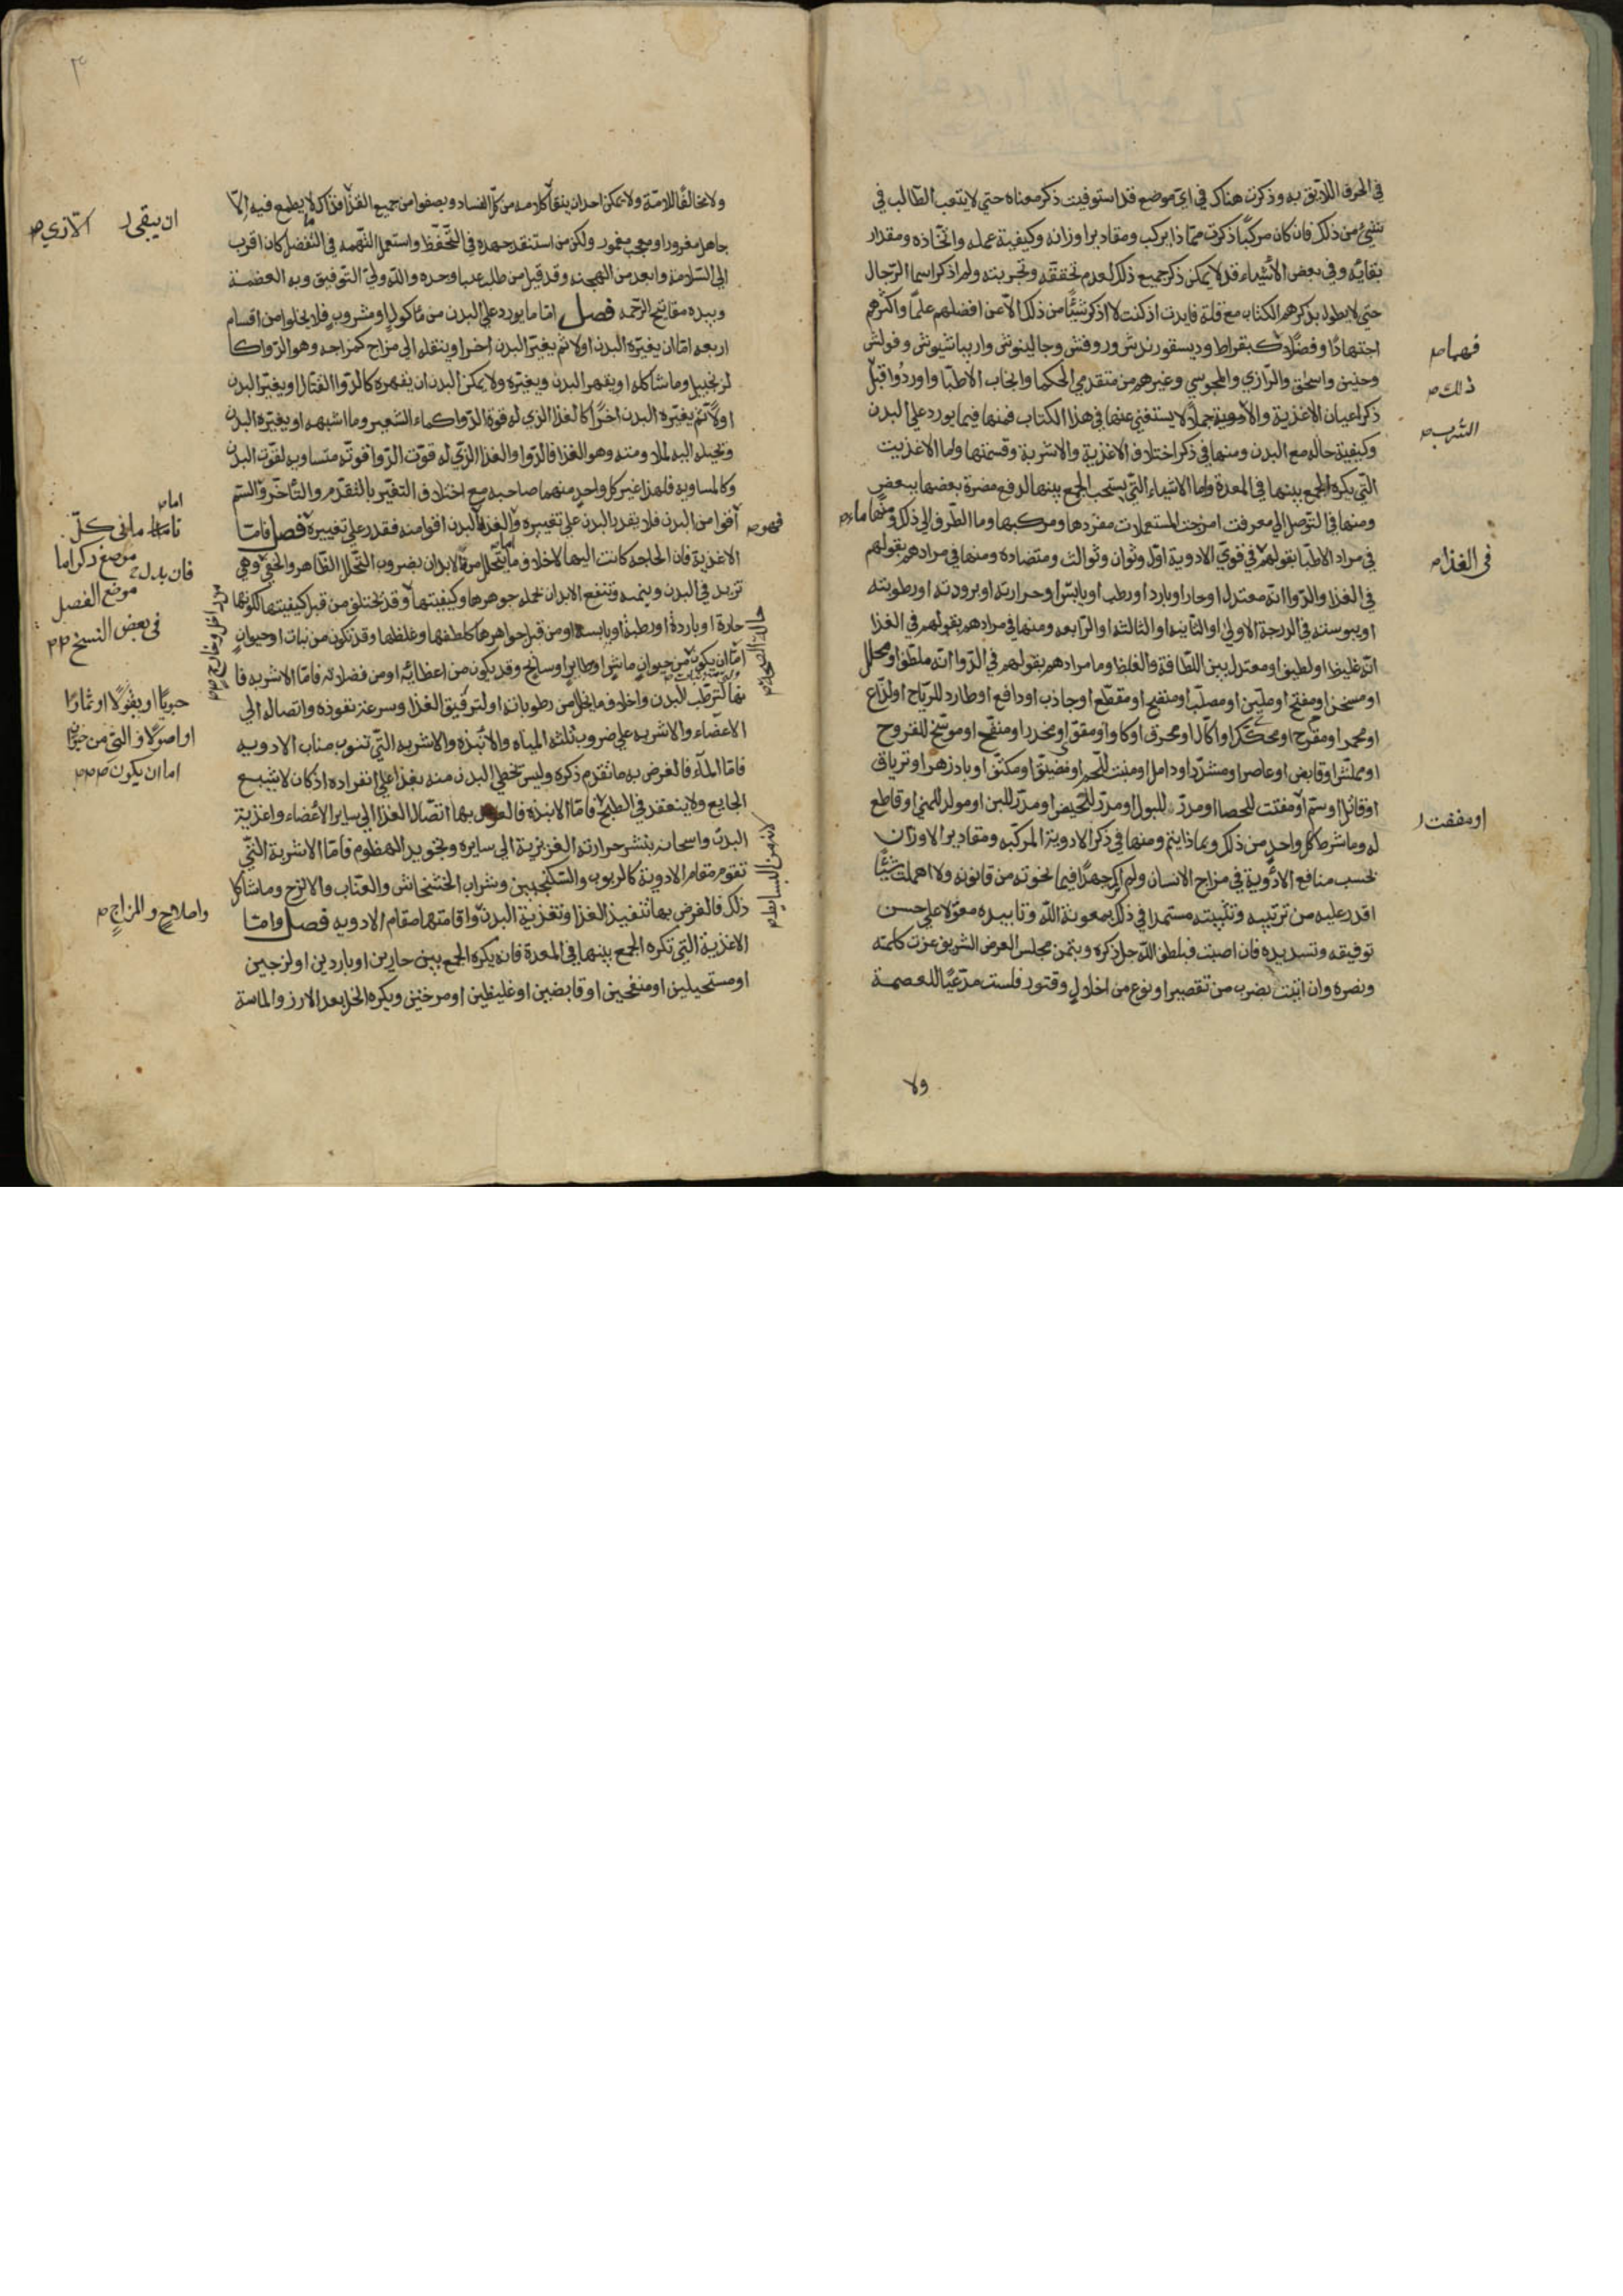 في الحرف اللائق به وذكرت هناك في اي موضع قد استوفيت ذكر معناه حتي لا يتعب الطالب في
شيء من ذلك فان كان مركبا ذكرت مما ذا يركب ومقادير اوزانه وكيفية عمله واتخاذه ومقدار
بقايه وفي بعض الأشياء قد لا يمكن ذكر جميع ذلك لعدم تحققه وتجربته ولم اذكر اسما الرجال
حتي لا يطول بذكرهم الكتاب مع قلة فايدت اذ كنت لا اذكر شيئا من ذلك الا عن افضلهم علما واكثرهم
اجتهادا وفضلا كبقراط وديسقوريدس وروفس وجالينوس واريباسيوس وفولس
وحنين واسحق والرازي والمجوسي وغيرهم من متقدمي الحكما وانجاب الاطبا واوردوا قبل
ذكر اعيان الاغذية والأدوية جملا لا يستغني عنها في هذا الكتاب فمنها فيما يورد علي البدن
وكيفية حاله مع البدن ومنها في ذكر اختلاف الاغذية والاشربة وقسمتها واما الاغذيت
التي يكره الجمع بينها في المعدة واما الاشياء التي يستحب الجمع بينها لدفع مضرة بعضها ببعض
ومنها في التوصل الي معرفت امزجت المستعملات مفردها ومركبها وما الطرق الي ذلك ومنها ما
في مراد الاطبا بقولهم في قوي الادوية اول وثوان وثوالث ومتضاده ومنها في مرادهم بقولهم
في الغذا والدوا انه معتدل او حار او بارد او رطب او يابس او حرارته او برودته او رطوبته
او يبوسته في الدرجة الاولي او الثانية او الثالثه او الرابعه ومنها في مرادهم بقولهم في الغذا
انه غليظ او لطيف او معتدل بين اللطافة والغلظ وما مرادهم بقولهم في الدوا انه ملطف او محلل
او مسخن او مفتح او ملين او مصلب او منضج او مقطع او جاذب او دافع او طارد للرياح او لذاع
او محمر او مقرح او محكك او اكال او محرق او كاو او مقو او مخدر او منفخ او موسخ للقروح
او مملس او قابض او عاصر او مشدد او دامل او منبت للحم او مضيق او مكثف او بادزهر او ترياق
او قاتل او سم او مفتت للحصا او مدر للبول او مدر للحيض او مدر للبن او مولد للمني او قاطع
له وما شرط كل واحد من ذلك وبماذا يتم ومنها في ذكر الادوية المركبه ومقادير الاوزان
بحسب منافع الادوية في مزاج الانسان ولم اك جهدا فيما نحوته من قانونه ولا اهملت شيئا
اقدر عليه من ترتيبه وتثبيته مستمدا في ذلك بمعونة الله وتاييده معولا علي حسن
توفيقه وتسديده فان اصبت فبلطف الله جل ذكره وبتمن مجلس العرض الشريف عزت كلمته
ونصره وان اتيت بضرب من تقصير او نوع من اخلال وفتور فلست مدعيا للعصمة
ولا
فهما
ذلك
الشرب
في الغذا
او مفتت
ولا مخالفا للامة ولا يمكن احد ان ينقا كلامه من كل الفساد ويصفوا من جميع القذا فذاك لا يطمع فيه الا
جاهل مغرور او معجب مغمور ولكن من استنفد جهده في التحفظ واستعمل التهمه في التفضل كان اقرب
الي السلامة وابعد من الهجنه وقد قيل من طلب عيبا وجده والله ولي التوفيق وبه العصمة
وبيده مفاتيح الرحمه فصل اما ما يورد علي البدن من ماكول او مشروب فلا يخلوا من اقسام
اربعه اما ان يغيره البدن اولا ثم يغير البدن اخرا وينقله الي مزاج كمزاجه وهو الدوا كا
لزنجبيل وما شاكله او يقهر البدن ويغيره ولا يمكن البدن ان يقهره كالدوا القتال او يغير البدن
اولا ثم يغيره البدن اخرا كالغذا الذي له قوة الدوا كماء الشعير وما اشبهه او يغيره البدن
وتحيله اليه ومنه وهو الغذا فالدوا والغذا الذي له قوت الدوا قوته متساويه لقوت البدن
وكالمساويه فلهذا غير كل واحد منهما صاحبه مع اختلاف التغير بالتقدم والتاخر والسم
اقوا من البدن فلا يقدر البدن علي تغييره والغذا البدن اقوا منه فقدر علي تغييره فصل فاما
الاغذية فان الحاجه كانت اليها لاخلاف ما يتحلل من الابدان بضروب التحلل الظاهر والخفي وهي
تزيد في البدن وينميه وتنتفع الابدان بجمله جوهرها وكيفيتها وقد تختلف من قبل كيفيتها لكونها
حارة او باردة او رطبة او يابسه او من قبل جواهرها كلطفها وغلظها وقد تكون من نبات او حيوان
اما ان يكون من حيوان ماش او طاير او سابح وقد يكون من اعضائه او من فضلاته فاما الاشربه فا
نها لترطب البدن واخلاف ما يتحلل من رطوباته او لترقيق الغذا وسرعة نفوذه واتصاله الي
الاعضاء والاشربه علي ضروب ثلثه المياه والانبذه والاشربه التي تنوب مناب الادويه
فاما الماء فالغرض به ما تقدم ذكره وليس يحظي البدن منه بغذا علي انفراده اذ كان لا يشبع
الجايع ولا ينعقد في الطبخ فاما الانبذه فالغرض بها اتصال الغذا الي ساير الأعضاء واغذية
البدن واسخانه بنشر حرارته الغريزية الي سايره وتجويد الهضوم فاما الاشربة التي
تقوم مقام الادوية كالربوب والسكنجبين وشراب الخشخاش والعناب والاترج وما شاكل
ذلك فالغرض بها تنفيذ الغذا وتغذية البدن واقامتها مقام الادويه فصل واما
الاغذية التي تكره الجمع بينها في المعدة فانه يكره الجمع بين حارين او باردين او لزجين
او مستحيلين او منفخين او قابضين او غليظين او مرخيين ويكره الخل بعد الارز والماسة
ان يبقي
اما
ما في كل
موضع ذكر اما
فان بدله
موضع الفصل
في بعض النسخ
حبوبا او بقولا او ثمارا
او اصولا و التي من حيوان
اما ان يكون
واصلاح والمزاج
فهو